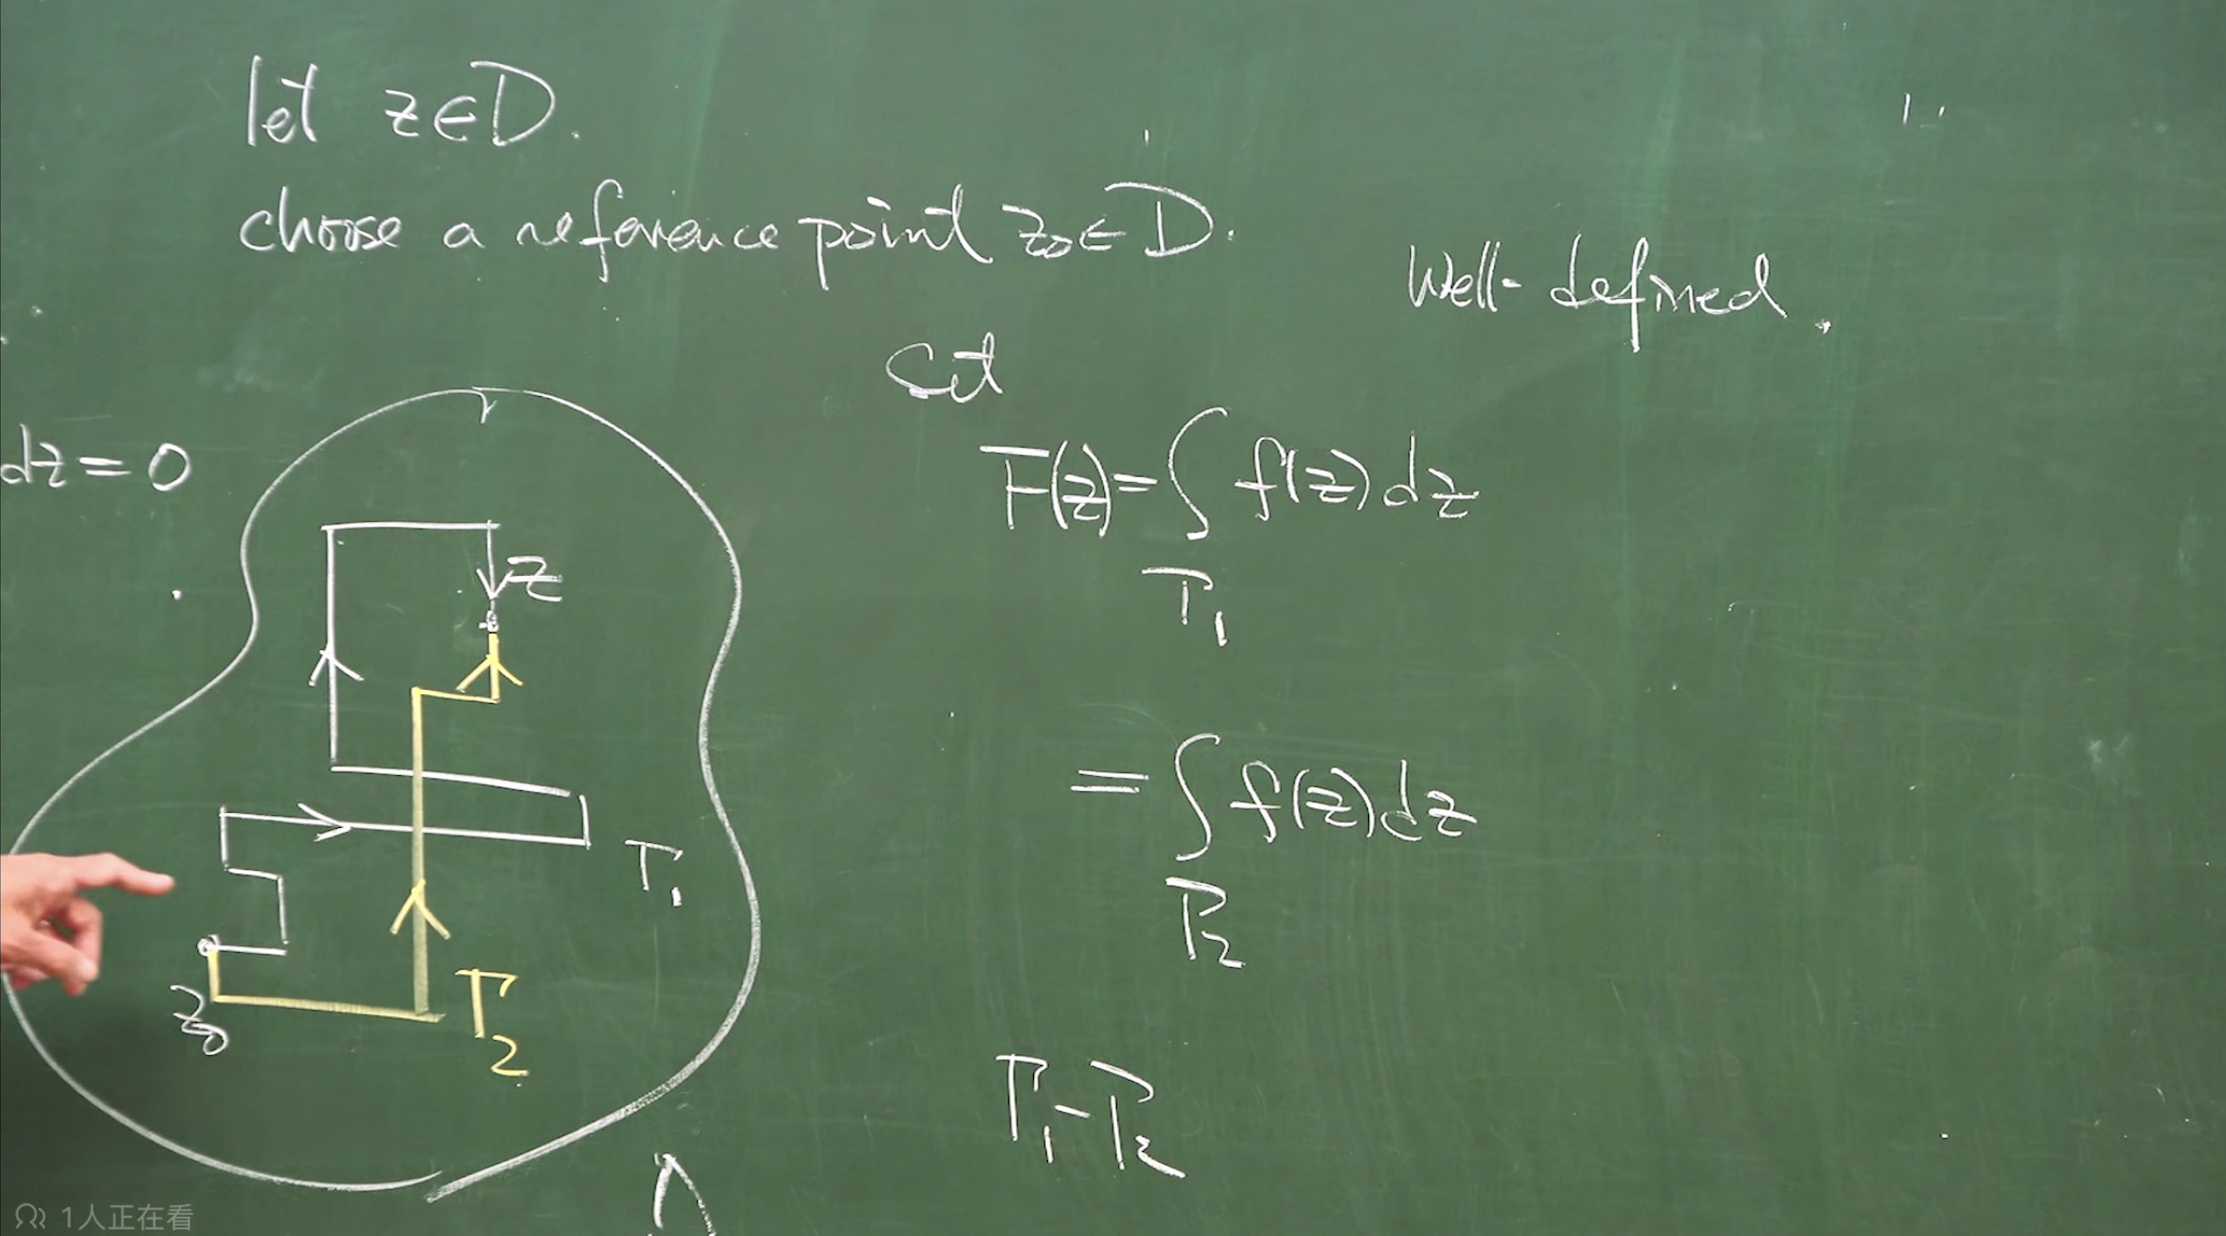 let z∈D.
choose a reference point z₀∈D.
Well-defined.
Set
dz=0
F(z)=∫ f(z)dz
Γ₁
z
=∫ f(z)dz
Γ₂
Γ₁
z₀
Γ₂
Γ₁-Γ₂
1人正在看